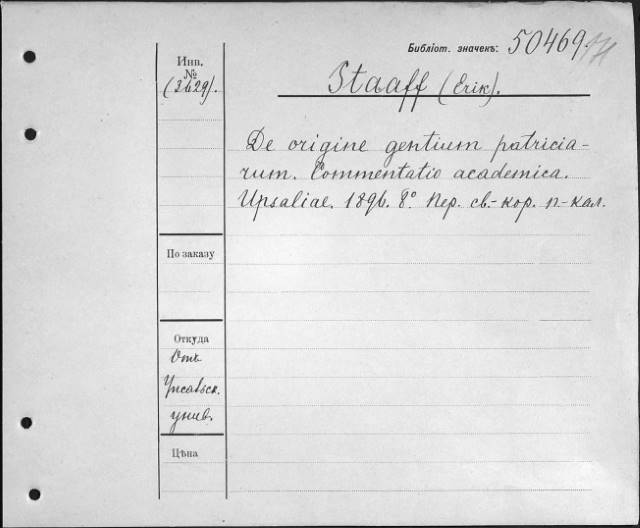 Библіот. значекъ: 50469
Инв.
№
(3629).
Staaff (Erik).
De origine gentium patricia-
rum. Commentatio academica.
Upsaliae. 1896. 8°. Пер. св.-кор. п-кал.
По заказу
Откуда
Отъ
Упсальск.
унив.
Цѣна